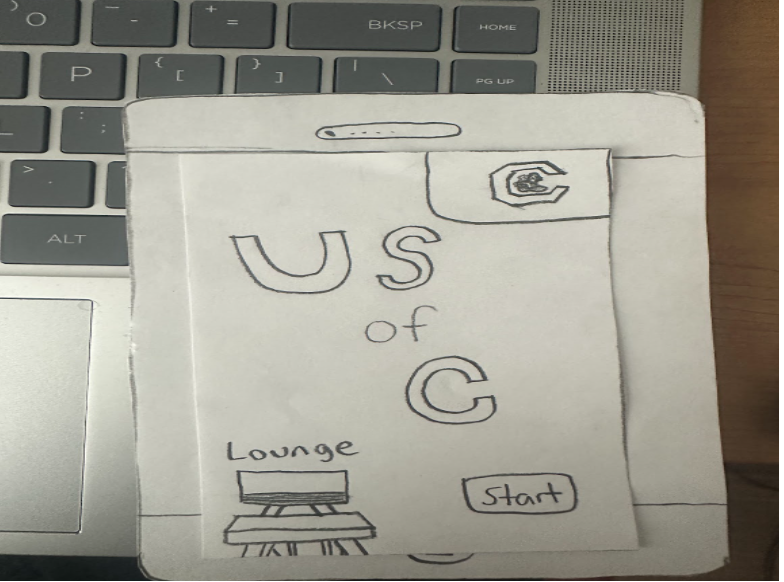 ) O
_ -
+ =
BKSP
HOME
P
{ [
} ]
| \
PG UP
: ;
> .
ALT
C
US
of
C
Lounge
Start